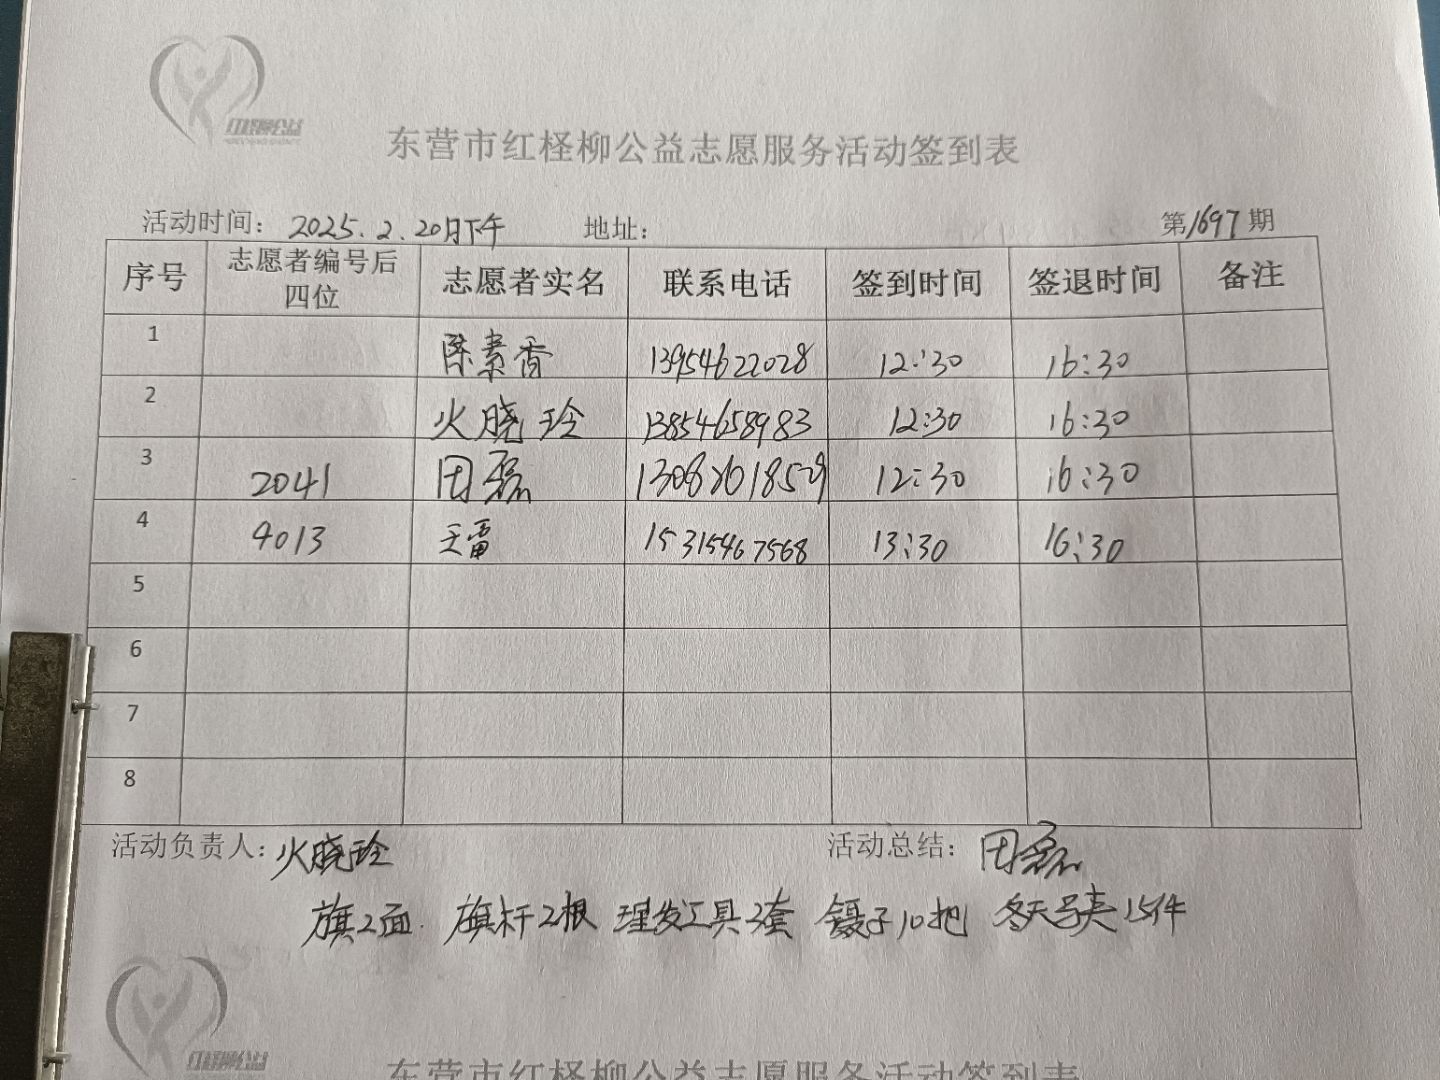 红柽柳公益
东营市红柽柳公益志愿服务活动签到表
活动时间：2025.2.20日下午 地址： 第1697期
序号 志愿者编号后四位 志愿者实名 联系电话 签到时间 签退时间 备注
1 陈素香 13954622028 12:30 16:30
2 火晓玲 13854658983 12:30 16:30
3 2041 田磊 12:30 16:30
4 4013 王雷 15315467568 13:30 16:30
5
6
7
8
活动负责人：火晓玲 活动总结：田磊
旗2面 旗杆2根 理发工具2套 镊子10把 冬天马夹15件
红柽柳公益
东营市红柽柳公益志愿服务活动签到表